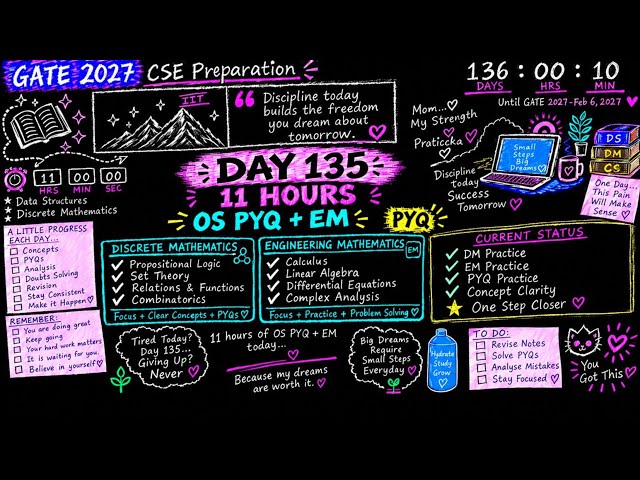 GATE 2027 CSE Preparation
136 : 00 : 10
DAYS HRS MIN
Until GATE 2027-Feb 6, 2027
IIT
❝ Discipline today
builds the freedom
you dream about
tomorrow.
Mom...
My Strength
Praticcka
Discipline
today
Success
Tomorrow
Small
Steps
Big
Dreams
DS
DM
CS
One Day...
This Pain
Will Make
Sense
11 : 00 : 00
HRS MIN SEC
★ Data Structures
★ Discrete Mathematics
DAY 135
11 HOURS
OS PYQ + EM
PYQ
A LITTLE PROGRESS
EACH DAY...
Concepts
PYQs
Analysis
Doubts Solving
Revision
Stay Consistent
Make it Happen
REMEMBER:
You are doing great
Keep going
Your hard work matters
It is waiting for you.
Believe in yourself
DISCRETE MATHEMATICS
✓ Propositional Logic
✓ Set Theory
✓ Relations & Functions
✓ Combinatorics
Focus + Clear Concepts + PYQs
ENGINEERING MATHEMATICS
EM
✓ Calculus
✓ Linear Algebra
✓ Differential Equations
✓ Complex Analysis
Focus + Practice + Problem Solving
CURRENT STATUS
✓ DM Practice
✓ EM Practice
✓ PYQ Practice
✓ Concept Clarity
★ One Step Closer
Tired Today?
Day 135...
Giving Up?
Never
11 hours of OS PYQ + EM
today...
Because my dreams
are worth it.
Big Dreams
Require
Small Steps
Everyday
Hydrate
Study
Grow
TO DO:
Revise Notes
Solve PYQs
Analyse Mistakes
Stay Focused
You
Got This